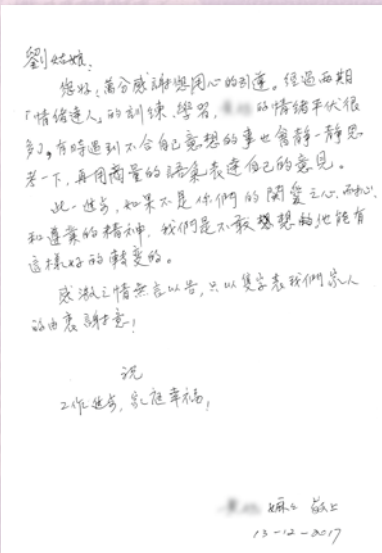 劉姑娘：
您好，萬分感謝您用心的引導。經過兩期
「情緒達人」的訓練、學習，的情緒平伏很
多，有時遇到不合自己意想的事也會靜一靜思
考一下，再用商量的語氣表達自己的意見。
此一進步，如果不是你們的關愛之心、耐心
和專業的精神，我們是不敢想想的他能有
這樣好的轉變的。
感激之情無言以告，只以隻字表我們家人
的由衷謝意！
祝
工作進步，家庭幸福！
嫲嫲 敬上
13-12-2017